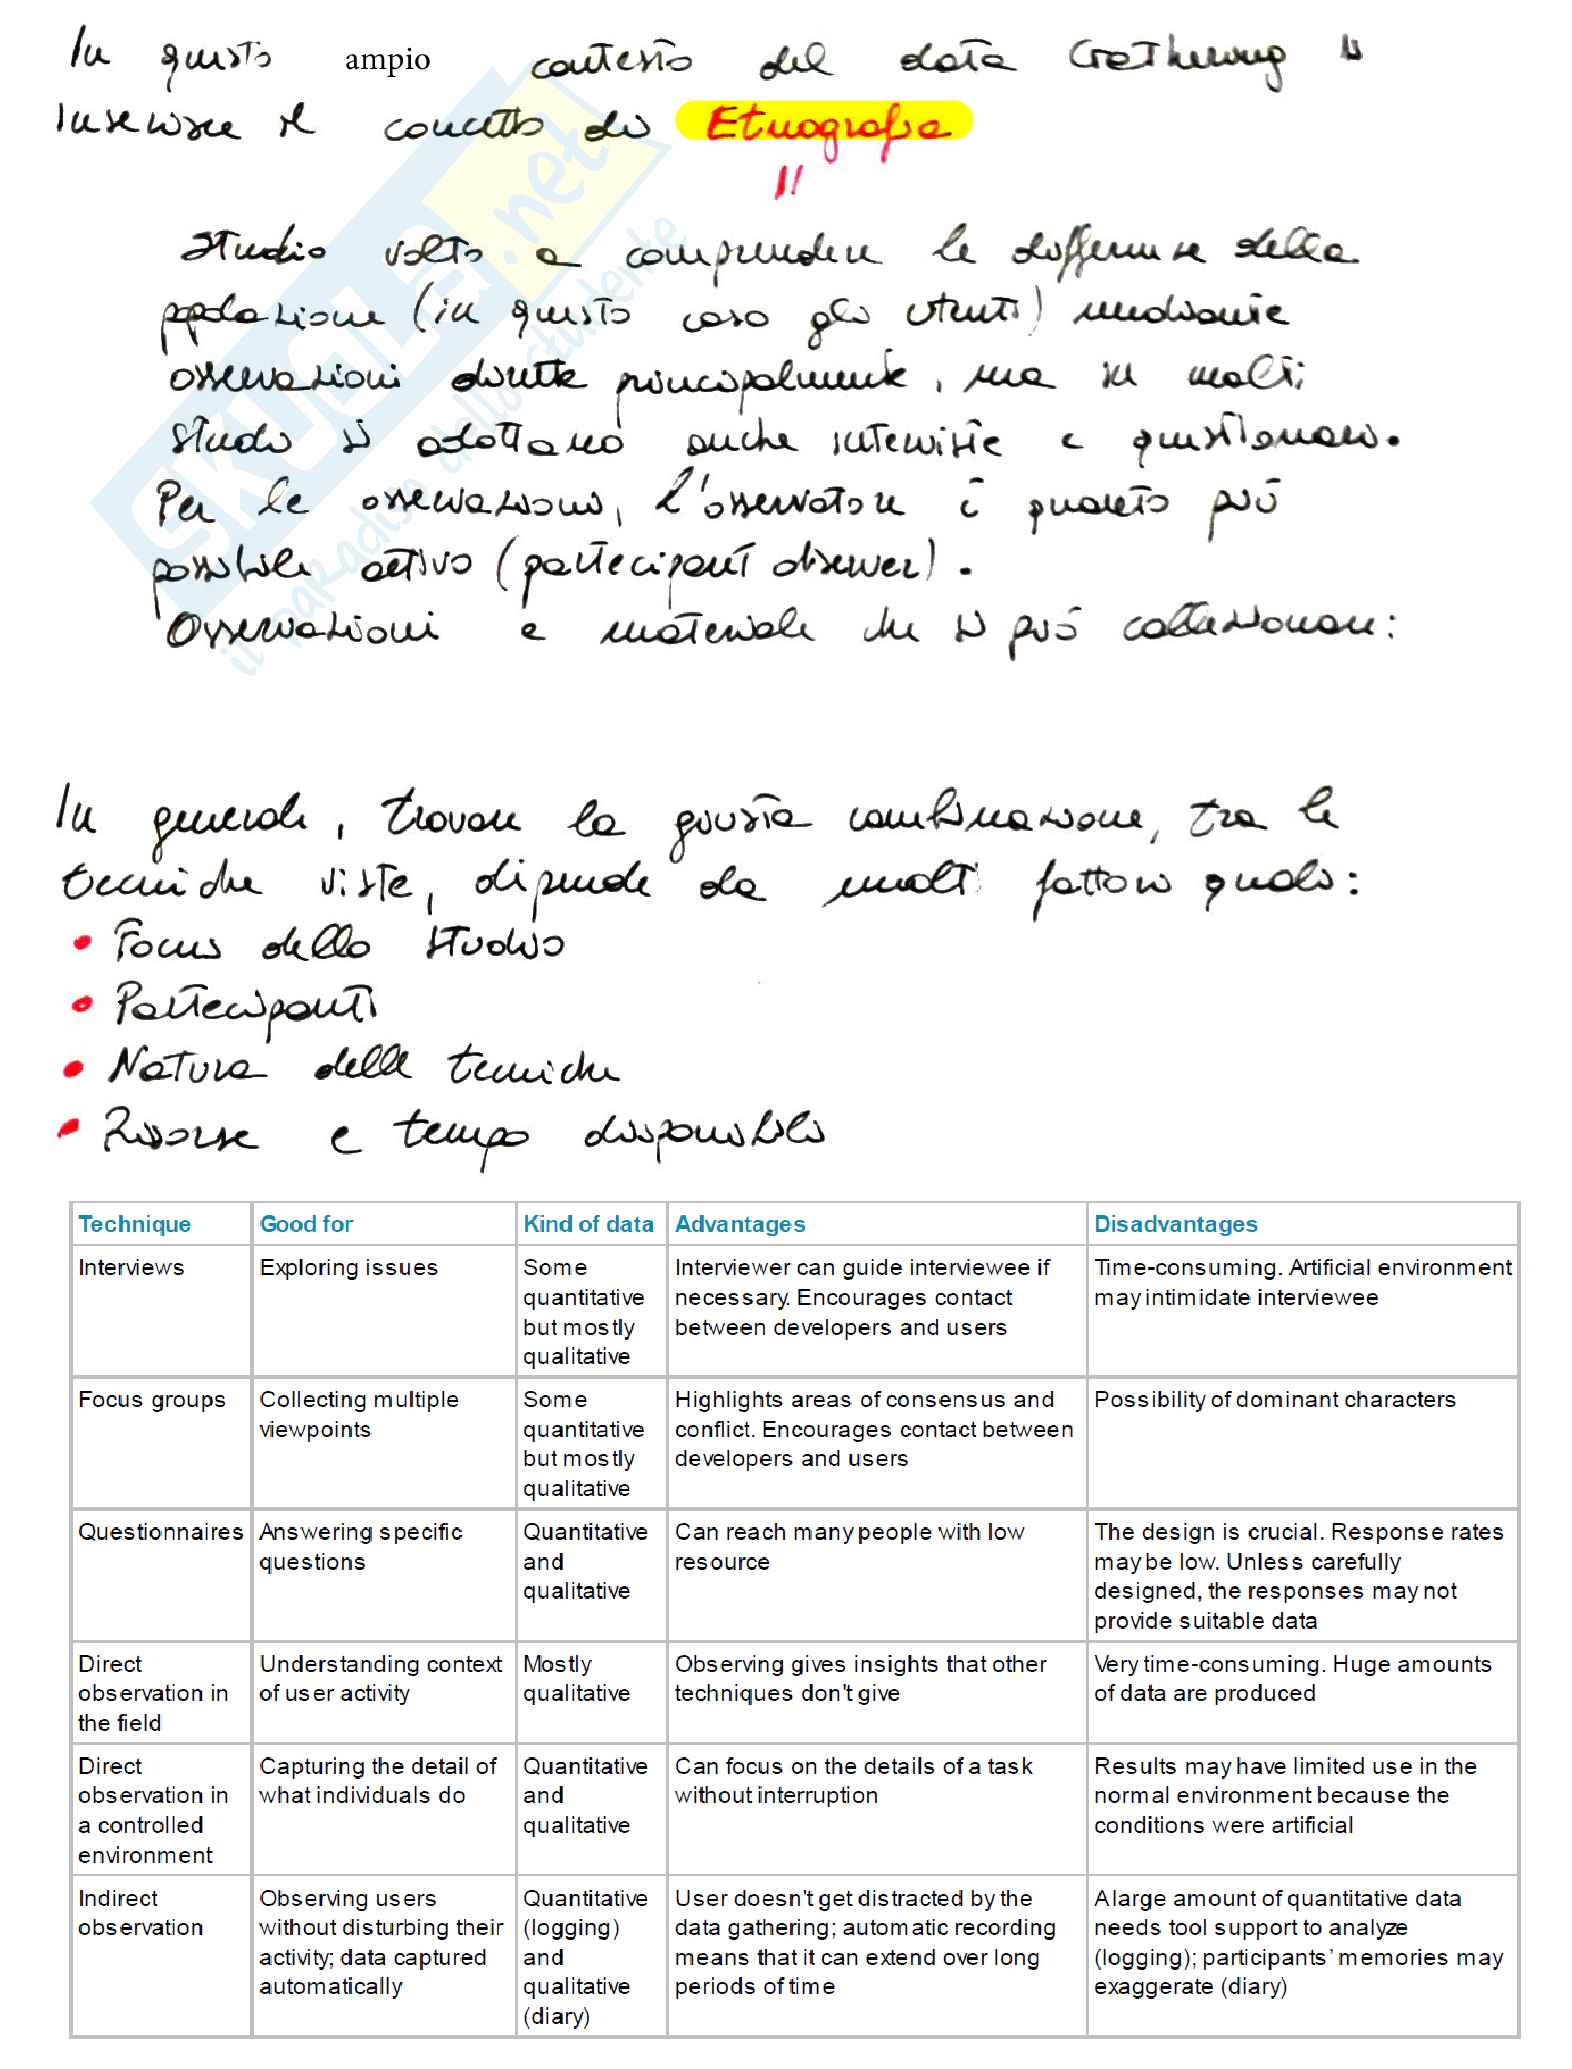 In questo ampio contesto del data Gathering si
inserisce il concetto di Etnografia
Studio volto a comprendere le differenze della
ppolazione (in questo caso gli utenti) mediante
osservazioni dirette principalmente, ma in molti
studi si adottano anche interviste e questionari.
Per le osservazioni, l'osservatore è quanto più
possibile attivo (partecipant observer).
Osservazioni e materiale che si può collezionare:
In generale, trovare la giusta combinazione, tra le
tecniche viste, dipende da molti fattori quali:
• Focus dello studio
• Partecipanti
• Natura delle tecniche
• Risorse e tempo disponibili
SKUOLA.net
il paradiso dello studente
Technique Good for Kind of data Advantages Disadvantages
Interviews Exploring issues Some Interviewer can guide interviewee if Time-consuming. Artificial environment
quantitative necessary. Encourages contact may intimidate interviewee
but mostly between developers and users
qualitative
Focus groups Collecting multiple Some Highlights areas of consensus and Possibility of dominant characters
viewpoints quantitative conflict. Encourages contact between
but mostly developers and users
qualitative
Questionnaires Answering specific Quantitative Can reach many people with low The design is crucial. Response rates
questions and resource may be low. Unless carefully
qualitative designed, the responses may not
provide suitable data
Direct Understanding context Mostly Observing gives insights that other Very time-consuming. Huge amounts
observation in of user activity qualitative techniques don't give of data are produced
the field
Direct Capturing the detail of Quantitative Can focus on the details of a task Results may have limited use in the
observation in what individuals do and without interruption normal environment because the
a controlled qualitative conditions were artificial
environment
Indirect Observing users Quantitative User doesn't get distracted by the A large amount of quantitative data
observation without disturbing their (logging) data gathering; automatic recording needs tool support to analyze
activity; data captured and means that it can extend over long (logging); participants' memories may
automatically qualitative periods of time exaggerate (diary)
(diary)